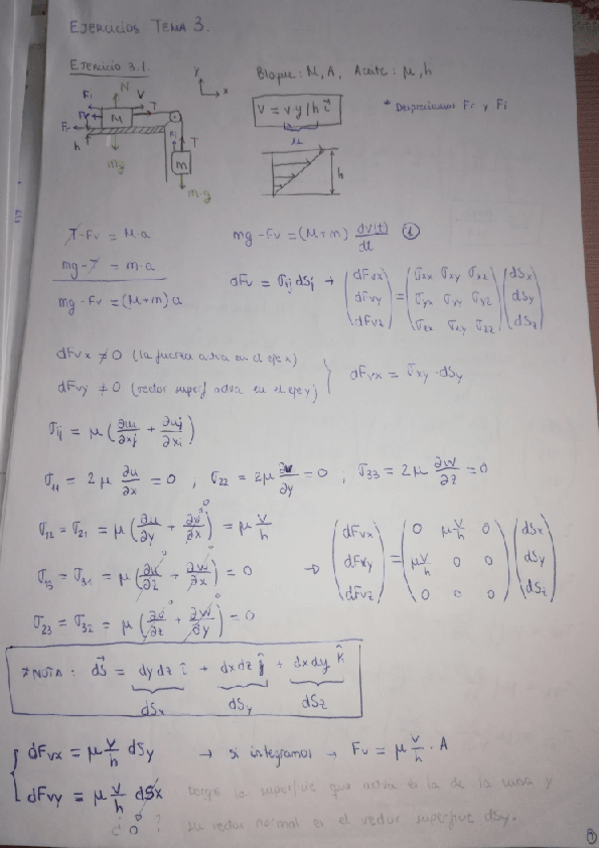 EJERCICIOS TEMA 3.
EJERCICIO 3.1.
Bloque: M, A, Aceite: μ, h
y
x
N
V
T
M
h
mg
T
m
m·g
V = v y/h î
u
h
* Despreciamos Fr y Fi
T - Fv = M·a
mg - T = m·a
mg - Fv = (M+m) a
mg - Fv = (M+m) dv(t)/dt ①
dFv = σij dSj → (dFvx dFvy dFvz) = (σxx σxy σxz σyx σyy σyz σzx σzy σzz) (dSx dSy dSz)
dFvx ≠ 0 (la fuerza actua en el eje x)
dFvy ≠ 0 (vector superf actua en el eje y)
dFvx = σxy · dSy
σij = μ (∂ui/∂xj + ∂uj/∂xi)
σ11 = 2μ ∂u/∂x = 0 , σ22 = 2μ ∂v/∂y = 0 ; σ33 = 2μ ∂w/∂z = 0
σ12 = σ21 = μ (∂u/∂y + ∂v/∂x) = μ v/h
σ13 = σ31 = μ (∂u/∂z + ∂w/∂x) = 0
→ (dFvx dFvy dFvz) = (0 μv/h 0 μv/h 0 0 0 0 0) (dSx dSy dSz)
σ23 = σ32 = μ (∂v/∂z + ∂w/∂y) = 0
* NOTA: dS = dy dz î + dx dz ĵ + dx dy k̂
dSx dSy dSz
dFvx = μ v/h dSy → si integramos → Fv = μ v/h · A
dFvy = μ v/h dSx porqe la superficie que actua es la de la y
¿0? su vector normal es el vector superficie dSy.
①